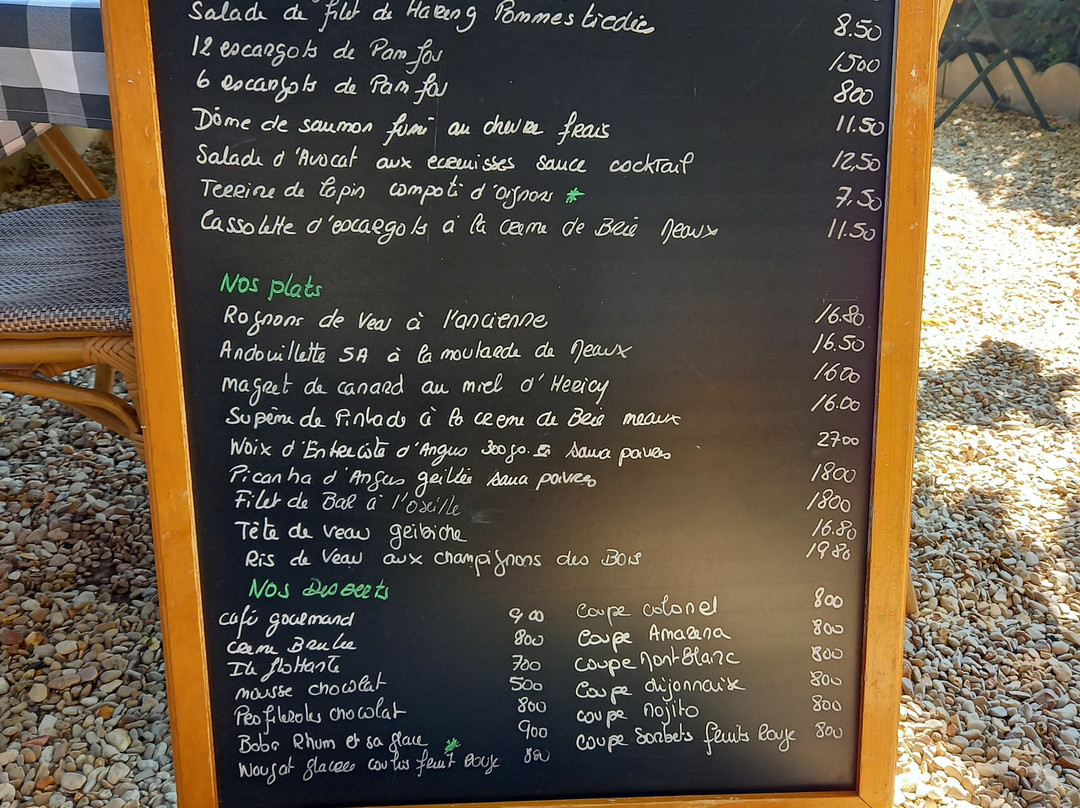 Salade de filet de Hareng Pommes tiedie 8.50
12 escargots de Pam fou 1500
6 escargots de Pam fou 800
Dôme de saumon fumi au chevre frais 11.50
Salade d'Avocat aux ecrevisses sauce cocktail 12,50
Terrine de lapin compoti d'oignons * 7,50
Cassolette d'escargots à la creme de Brie Meaux 11.50
Nos plats
Rognons de Veau à l'ancienne 16.80
Andouillette 5A à la moutarde de Meaux 16.50
magret de canard au miel d'Hericy 1600
Supême de Pintade à la creme de Brie meaux 16.00
Noix d'Entrecôte d'Angus 300gr. sauce poivres 2700
Picanha d'Angus grillée sauce poivres 1800
Filet de Bar à l'Oseille 1800
Tête de veau gribiche 16.80
Ris de Veau aux champignons des Bois 1980
Nos Desserts
café gourmand 900 coupe colonel 800
creme Brulee 800 coupe Amarena 800
Ile flottante 700 coupe Mont Blanc 800
mousse chocolat 500 Coupe dijonnaise 800
Profiteroles chocolat 800 coupe Mojito 800
Baba Rhum et sa glace 900 coupe Sorbets fruits Rouge 800
Nougat glacee coulis fruit rouge * 800